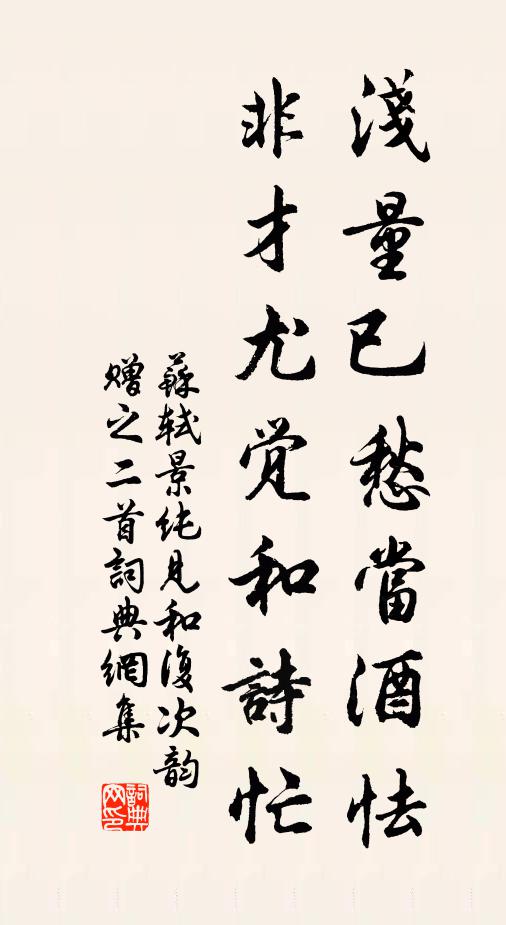 淺量已愁當酒怯
非才尤觉和詩忙
蘇軾景純見和復次韵
赠之二首詞典網集
詞典网印